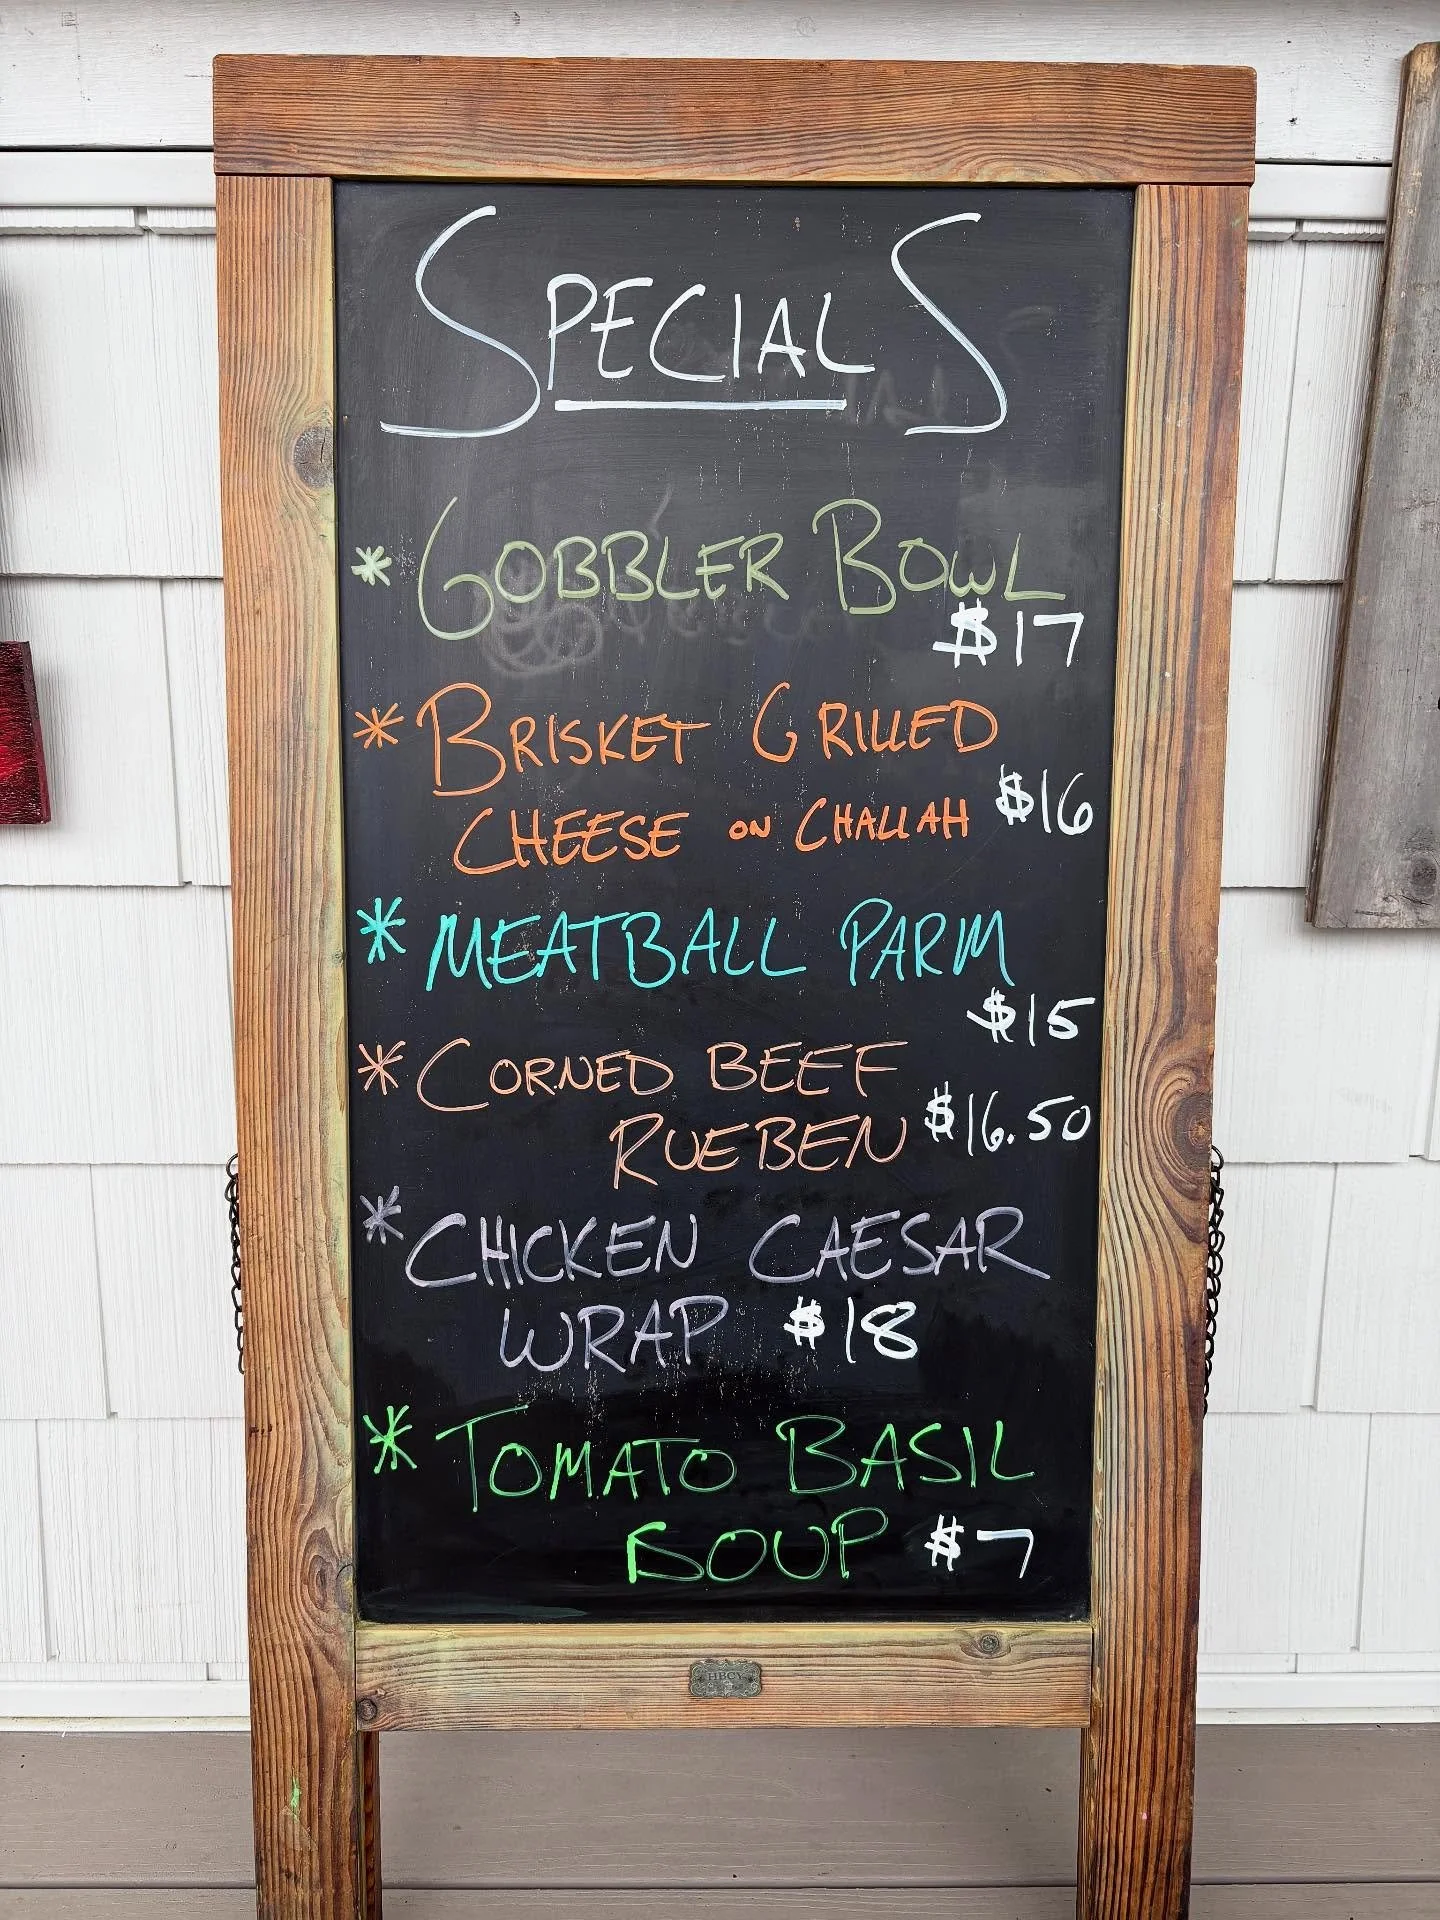 SPECIALS
* GOBBLER BOWL
$17
* BRISKET GRILLED
CHEESE ON CHALLAH $16
* MEATBALL PARM
$15
* CORNED BEEF
RUEBEN $16.50
* CHICKEN CAESAR
WRAP $18
* TOMATO BASIL
SOUP $7
HBCY